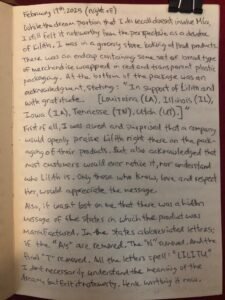 February 17th, 2025 (night of)
While the dream portion that I do recall doesn't involve Her,
I still felt it noteworthy from the perspective as a devotee
of Lilith. I was in a grocery store looking at food products.
There was an endcap containing some sort of bread type
of merchandise wrapped in red and transparent plastic
packaging. At the bottom of the package was an
acknowledgment, stating: "In support of Lilith and
with gratitude. [Louisiana (LA), Illinois (IL),
Iowa (IA), Tennesse (TN), Utah (UT).]"
First of all, I was awed and surprised that a company
would openly praise Lilith right there on the pack-
aging of their products. But also acknowledged that
most customers would ever notice it, nor understand
who Lilith is. Only those who know, love, and respect
her, would appreciate the message.
Also, it wasn't lost on me, that there was a hidden
message of the states in which the product was
manufactured. In the states abbreviated letters;
if the "A's" are removed. The "N" removed. And the
final "T" removed. All the letters spell: "LILITU"
I don't necessarily understand the meaning of the
dream, but felt it noteworthy. Hence writing it now.